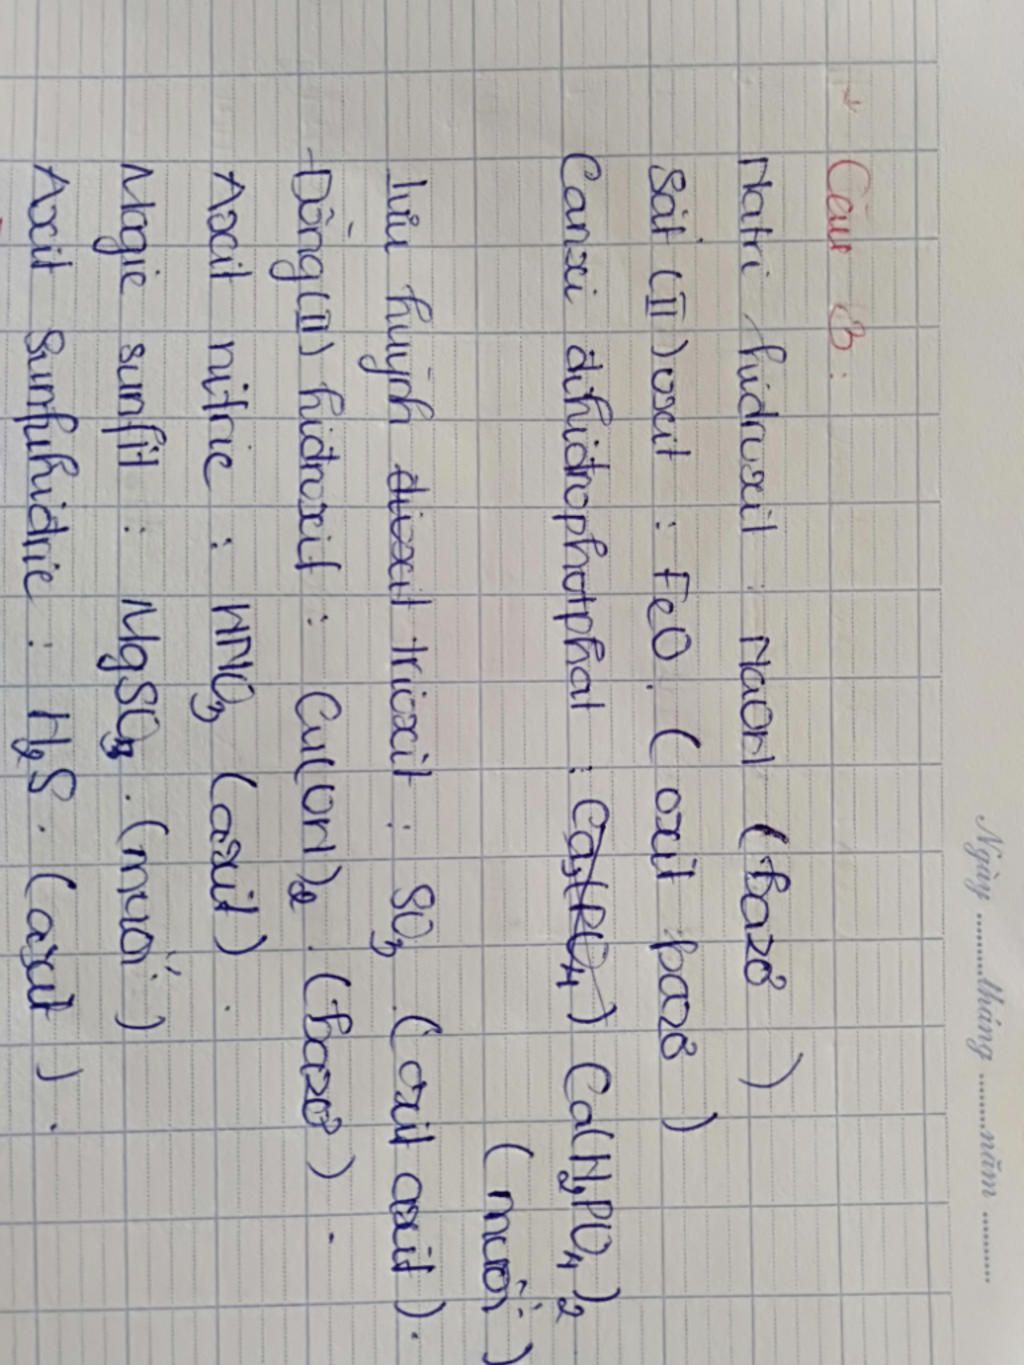 Ngày ........tháng ........năm ..........
Câu 3 :
Natri hiđroxit : NaOH (bazơ)
Sắt (II) oxit : FeO. (oxit bazơ)
Canxi đihiđrophotphat : Ca3(PO4) Ca(H2PO4)2
(muối)
lưu huỳnh đioxit trioxit : SO3. (oxit axit).
Đồng(II) hiđroxit : Cu(OH)2. (bazơ).
Axit nitric : HNO3 (axit).
Magie sunfit : MgSO3. (muối)
Axit Sunfuhiđric : H2S. (axit).